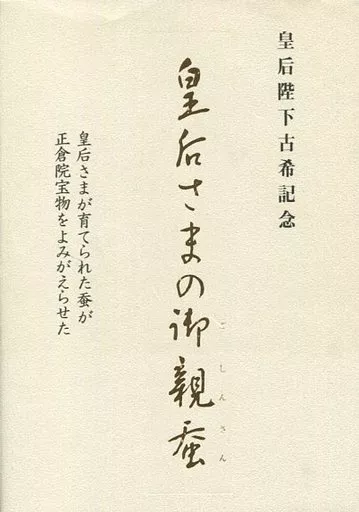 皇后陛下古希記念
皇后さまの御親蚕
ごしんさん
皇后さまが育てられた蚕が
正倉院宝物をよみがえらせた